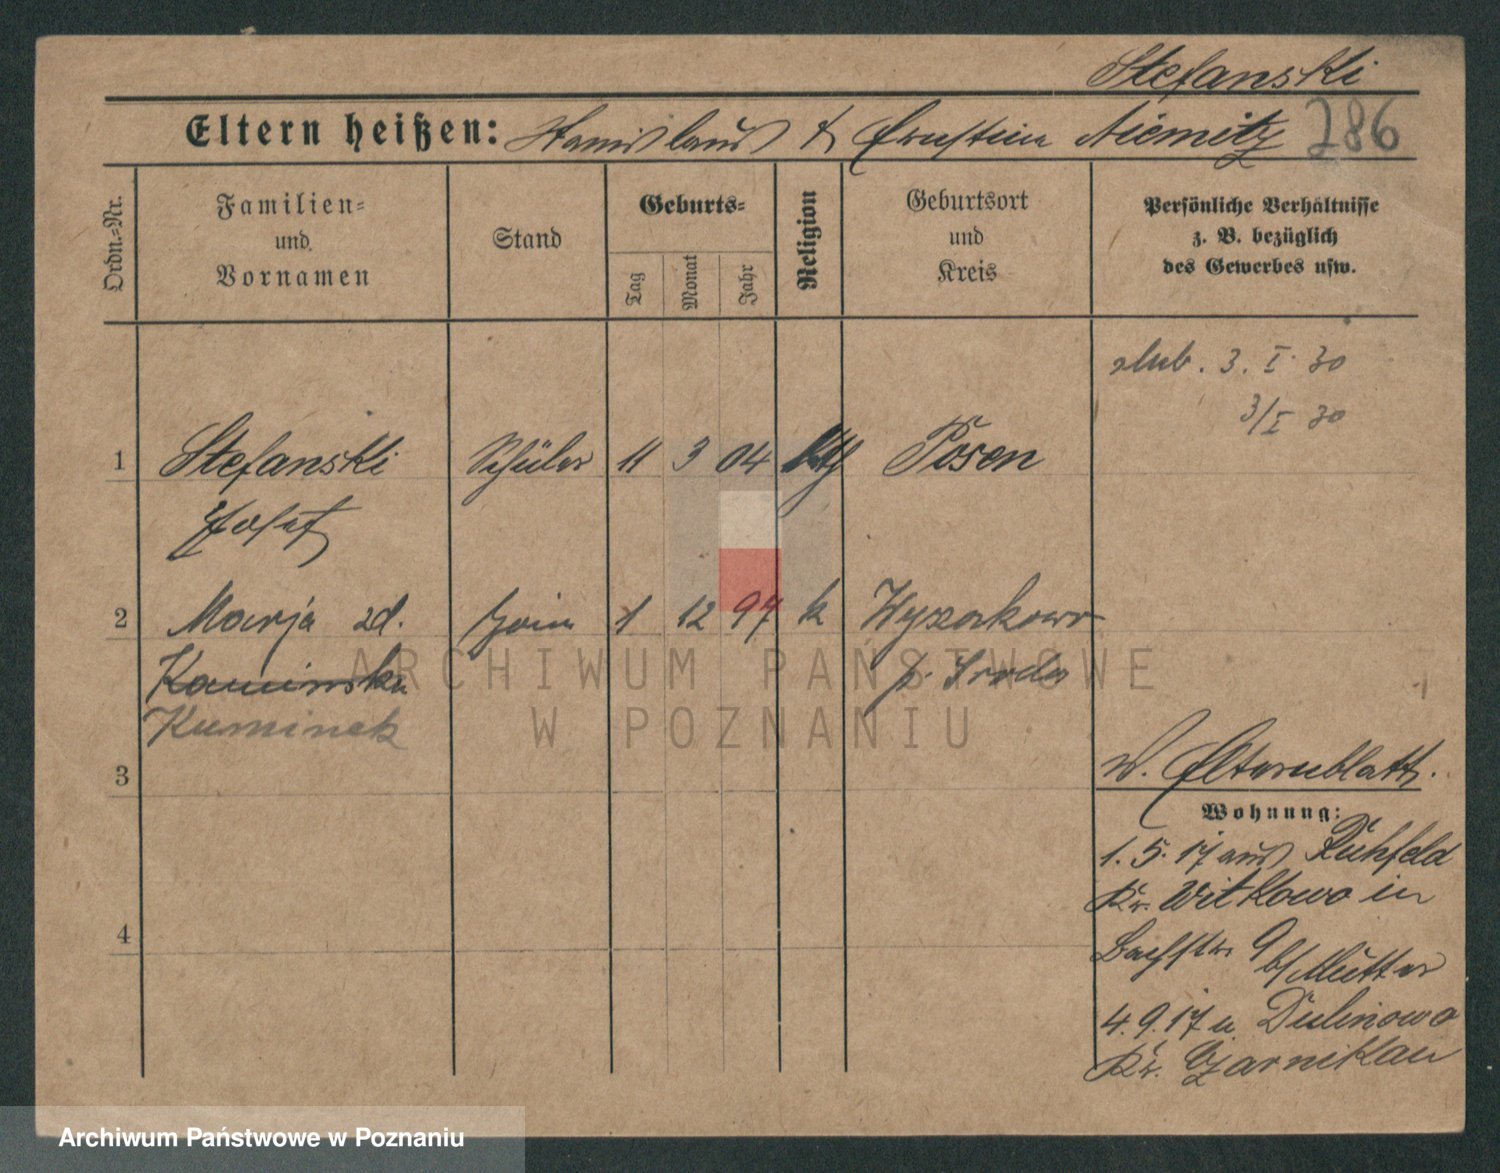 Stefanski
Eltern heißen: Stanislaus & Ernstein Niemitz 286
Ordn.=Nr.
Familien=
und
Vornamen
Stand
Geburts=
Tag
Monat
Jahr
Religion
Geburtsort
und
Kreis
Persönliche Verhältnisse
z. B. bezüglich
des Gewerbes usw.
slub. 3. I. 30
3/I 30
1 Stefanski Schüler 11 3 04 kth Posen
Josef
2 Marja zd. 1 12 97 k Wyszakowo
Kaminska p. Sroda
Kuminek
3
4
w. Elternblatt.
Wohnung:
1. 5. 17 aus Ruhfeld
Kr. Witkowo in
Bachstr. 9
b/ Mutter
4. 9. 17 n. Dulinowo
Kr. Czarnikau
ARCHIWUM PAŃSTWOWE
W POZNANIU
Archiwum Państwowe w Poznaniu